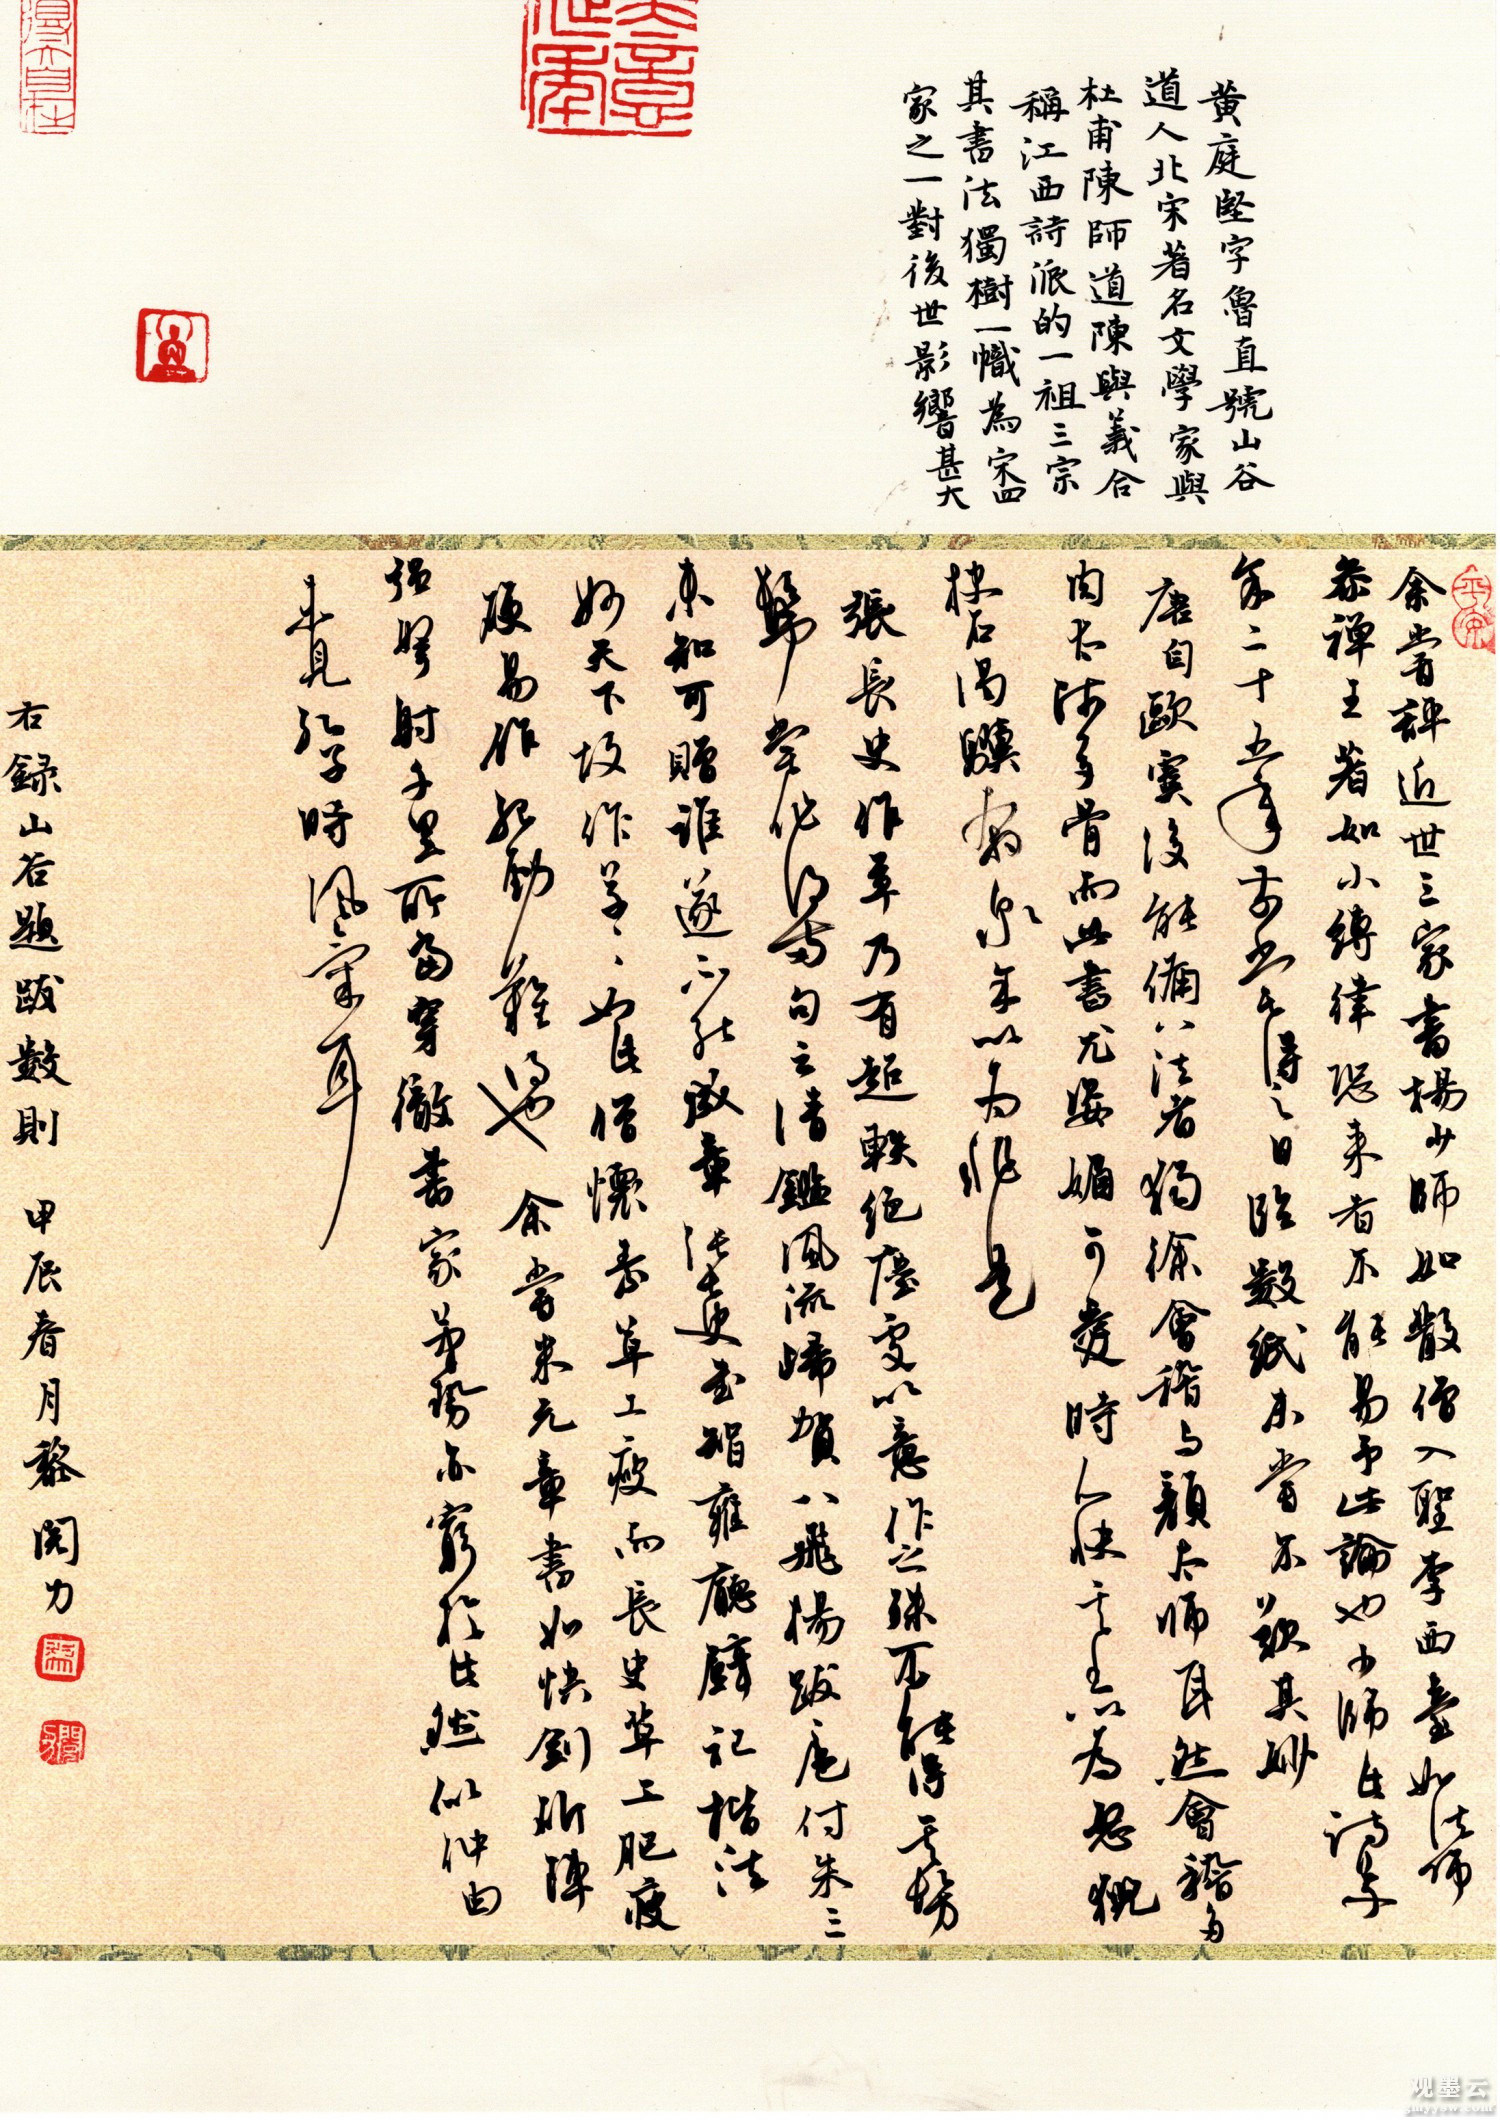 黄庭堅字魯直號山谷
道人北宋著名文學家與
杜甫陳師道陳與義合
稱江西詩派的一祖三宗
其書法獨樹一幟為宋四
家之一對後世影響甚大
余嘗評近世三家書楊少師如散僧入聖李西臺如法師
參禪王著如小縛律恐來者不能易予此論也少師此詩草
余二十五年前嘗得之日臨數紙未嘗不歎其妙
唐自歐虞後能備八法者獨徐會稽与顏太師耳然會稽多
肉太師多骨而此書尤姿媚可愛時人快其書以為怒猊
抉石渴驥奔泉余以為非是
張長史作草乃有超軼絕塵處以意作之殊不能得其髣
髴嘗作得兩句云清鑑風流歸賀八飛揚跋扈付朱三
未知可贈誰遂不能成章張長史書智雍廳壁記楷法
妙天下故作草草如此僧懷素草工瘦而長史草工肥瘦
硬易作肥勁難得也 余嘗米元章書如快劍斫陣
强弩射千里所當穿徹書家筆勢亦窮於此然似仲由
未見孔子時風氣耳
右録山谷題跋數則 甲辰春月黎閱力
观墨云